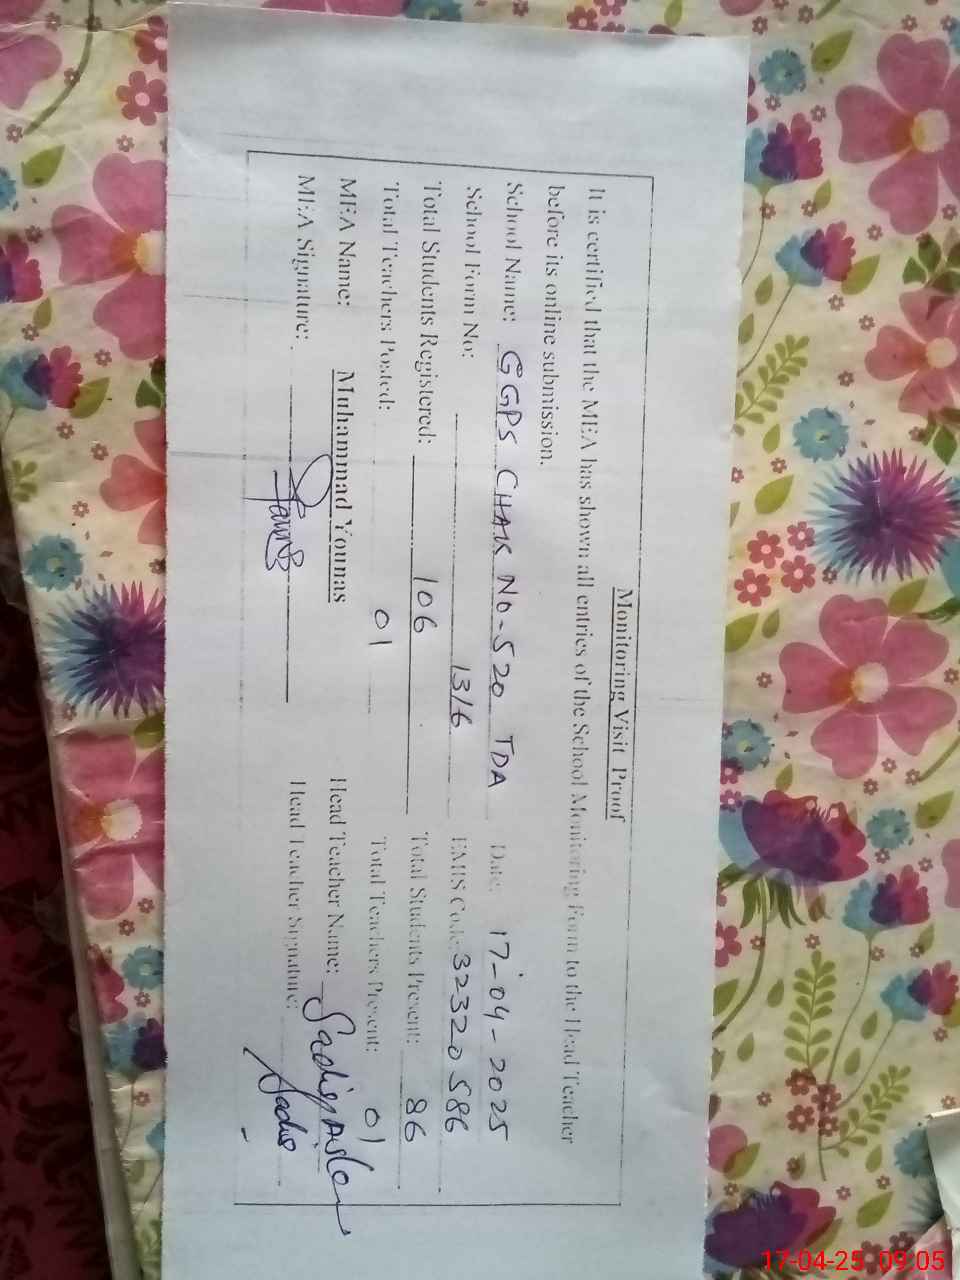 Monitoring Visit Proof
It is certified that the MEA has shown all entries of the School Monitoring Form to the Head Teacher
before its online submission.
School Name: GGPS CHAK NO-520 TDA Date: 17-04-2025
School Form No: 1316 EMIS Code: 32320586
Total Students Registered: 106 Total Students Present: 86
Total Teachers Posted: 01 Total Teachers Present: 01
MEA Name: Muhammad Younas Head Teacher Name: Sadia
MEA Signature: Head Teacher Signature: Sadia
17-04-25 09:05